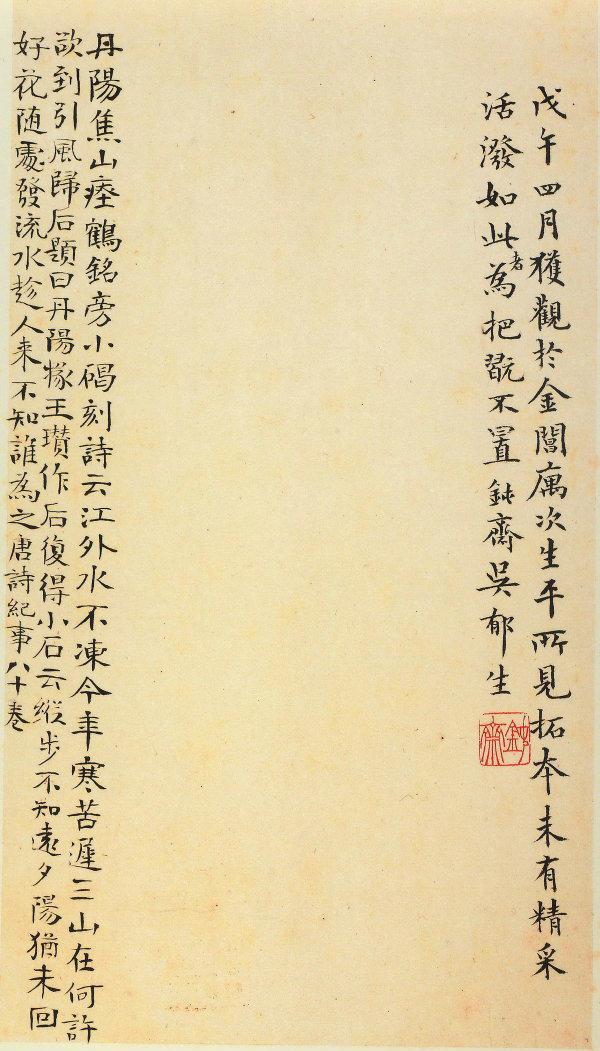 戊午四月獲觀於金閶寓次生平所見拓本未有精采
活潑如此者為把翫不置鈍齋吳郁生
鈍齋
丹陽焦山瘞鶴銘旁小碣刻詩云江外水不凍今年寒苦遲三山在何許
欲到引風歸后題曰丹陽掾王瓚作后復得小石云縱步不知遠夕陽猶未回
好花随處發流水趁人来不知誰為之唐詩紀事八十卷